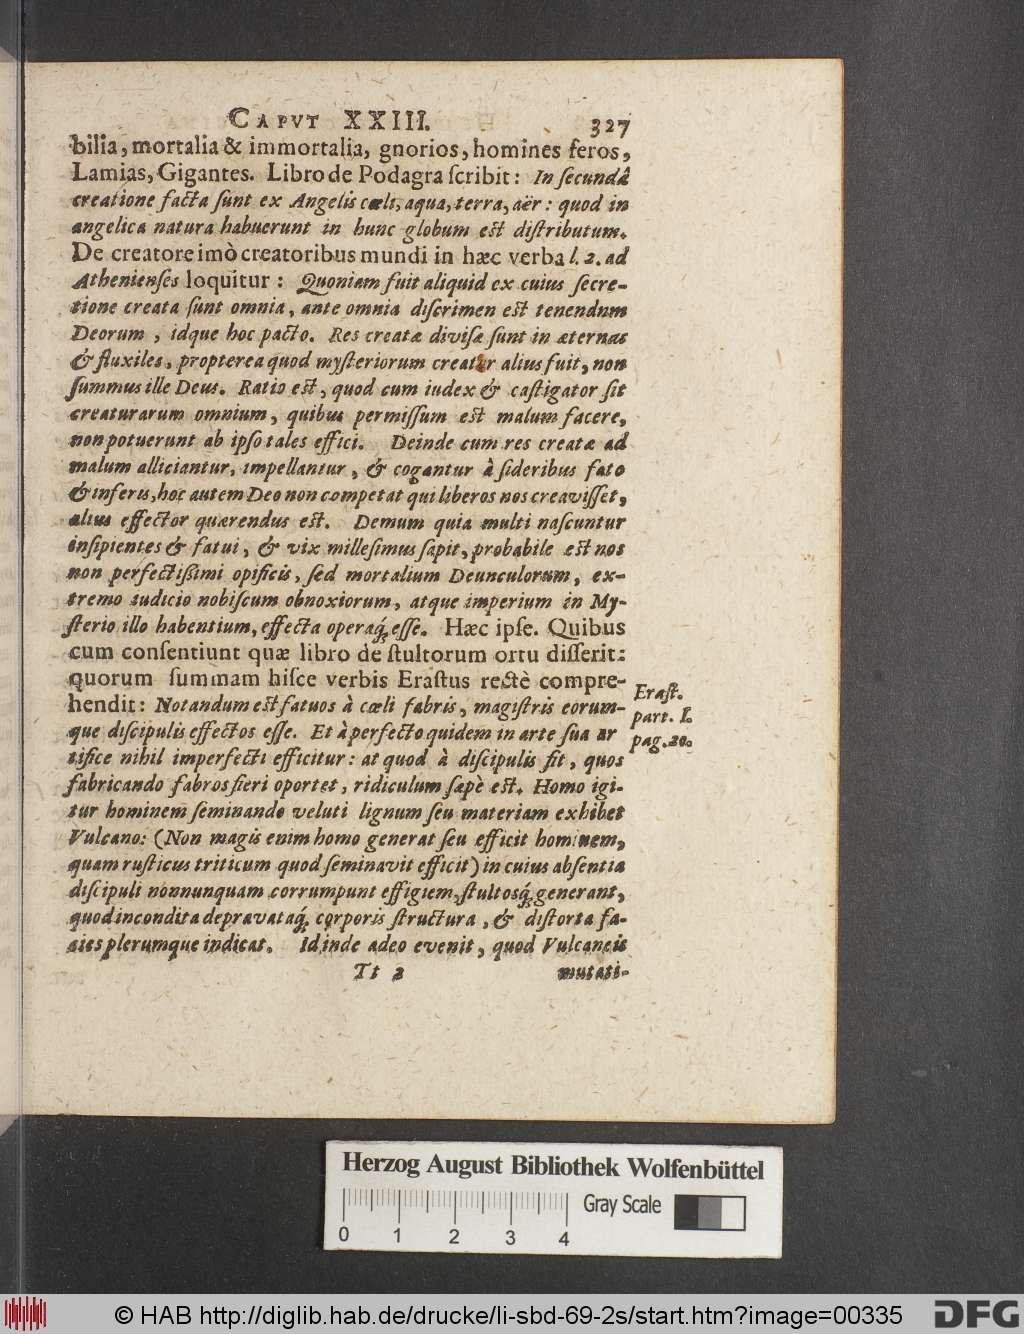 CAPVT XXIII. 327
bilia, mortalia & immortalia, gnorios, homines feros,
Lamias, Gigantes. Libro de Podagra ſcribit: In ſecundâ
creatione facta ſunt ex Angelis cœli, aqua, terra, aër: quod in
angelica natura habuerunt in hunc globum est diſtributum.
De creatore imò creatoribus mundi in hæc verba l. 2. ad
Athenienſes loquitur: Quoniam fuit aliquid ex cuius ſecre-
tione creata ſunt omnia, ante omnia diſcrimen est tenendum
Deorum, idque hoc pacto. Res creatæ diviſæ ſunt in æternas
& fluxiles, propterea quod myſteriorum creator alius fuit, non
ſummus ille Deus. Ratio est, quod cum iudex & caſtigator ſit
creaturarum omnium, quibus permiſſum est malum facere,
non potuerunt ab ipſo tales effici. Deinde cum res creatæ ad
malum alliciantur, impellantur, & cogantur à ſideribus fato
& inferis, hoc autem Deo non competat qui liberos nos creaviſſet,
alius effector quærendus est. Demum quia multi naſcuntur
inſipientes & fatui, & vix milleſimus ſapit, probabile est nos
non perfectißimi opificis, ſed mortalium Deunculorum, ex-
tremo iudicio nobiſcum obnoxiorum, atque imperium in My-
ſterio illo habentium, effecta operaq́; eſſe. Hæc ipſe. Quibus
cum conſentiunt quæ libro de ſtultorum ortu diſſerit:
quorum ſummam hiſce verbis Eraſtus rectè compre-
hendit: Notandum est fatuos à cœli fabris, magiſtris eorum-
que diſcipulis effectos eſſe. Et à perfecto quidem in arte ſua ar
tifice nihil imperfecti efficitur: at quod à diſcipulis fit, quos
fabricando fabros fieri oportet, ridiculum ſæpè est. Homo igi-
tur hominem ſeminando veluti lignum ſeu materiam exhibet
Vulcano: (Non magis enim homo generat ſeu efficit hominem,
quam ruſticus triticum quod ſeminavit efficit) in cuius abſentia
diſcipuli nonnunquam corrumpunt effigiem, ſtultosq́; generant,
quod incondita depravataq́; corporis ſtructura, & diſtorta fa-
cies plerumque indicat. Id inde adeo evenit, quod Vulcaneis
Tt 2 mutati-
Eraſt.
part. I.
pag. 20.
Herzog August Bibliothek Wolfenbüttel
Gray Scale
0 1 2 3 4
© HAB http://diglib.hab.de/drucke/li-sbd-69-2s/start.htm?image=00335
DFG